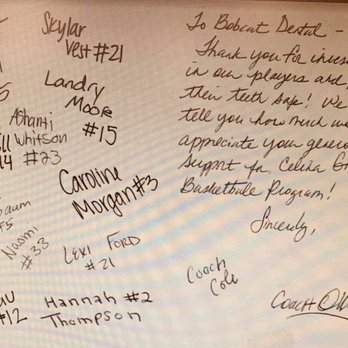 Skylar
Vest #21
Landry
Moore
#15
Ashanti
Whitson
#23
Caroline
Morgan #3
Naomi
#33
Levi Ford
#21
Hannah #2
Thompson
#12
To Bobcat Dental -
Thank you for
in our players and
their teeth safe! We
tell you how much
appreciate your
support for Celina
Basketball Program!
Sincerely,
Coach
Cole
Coach